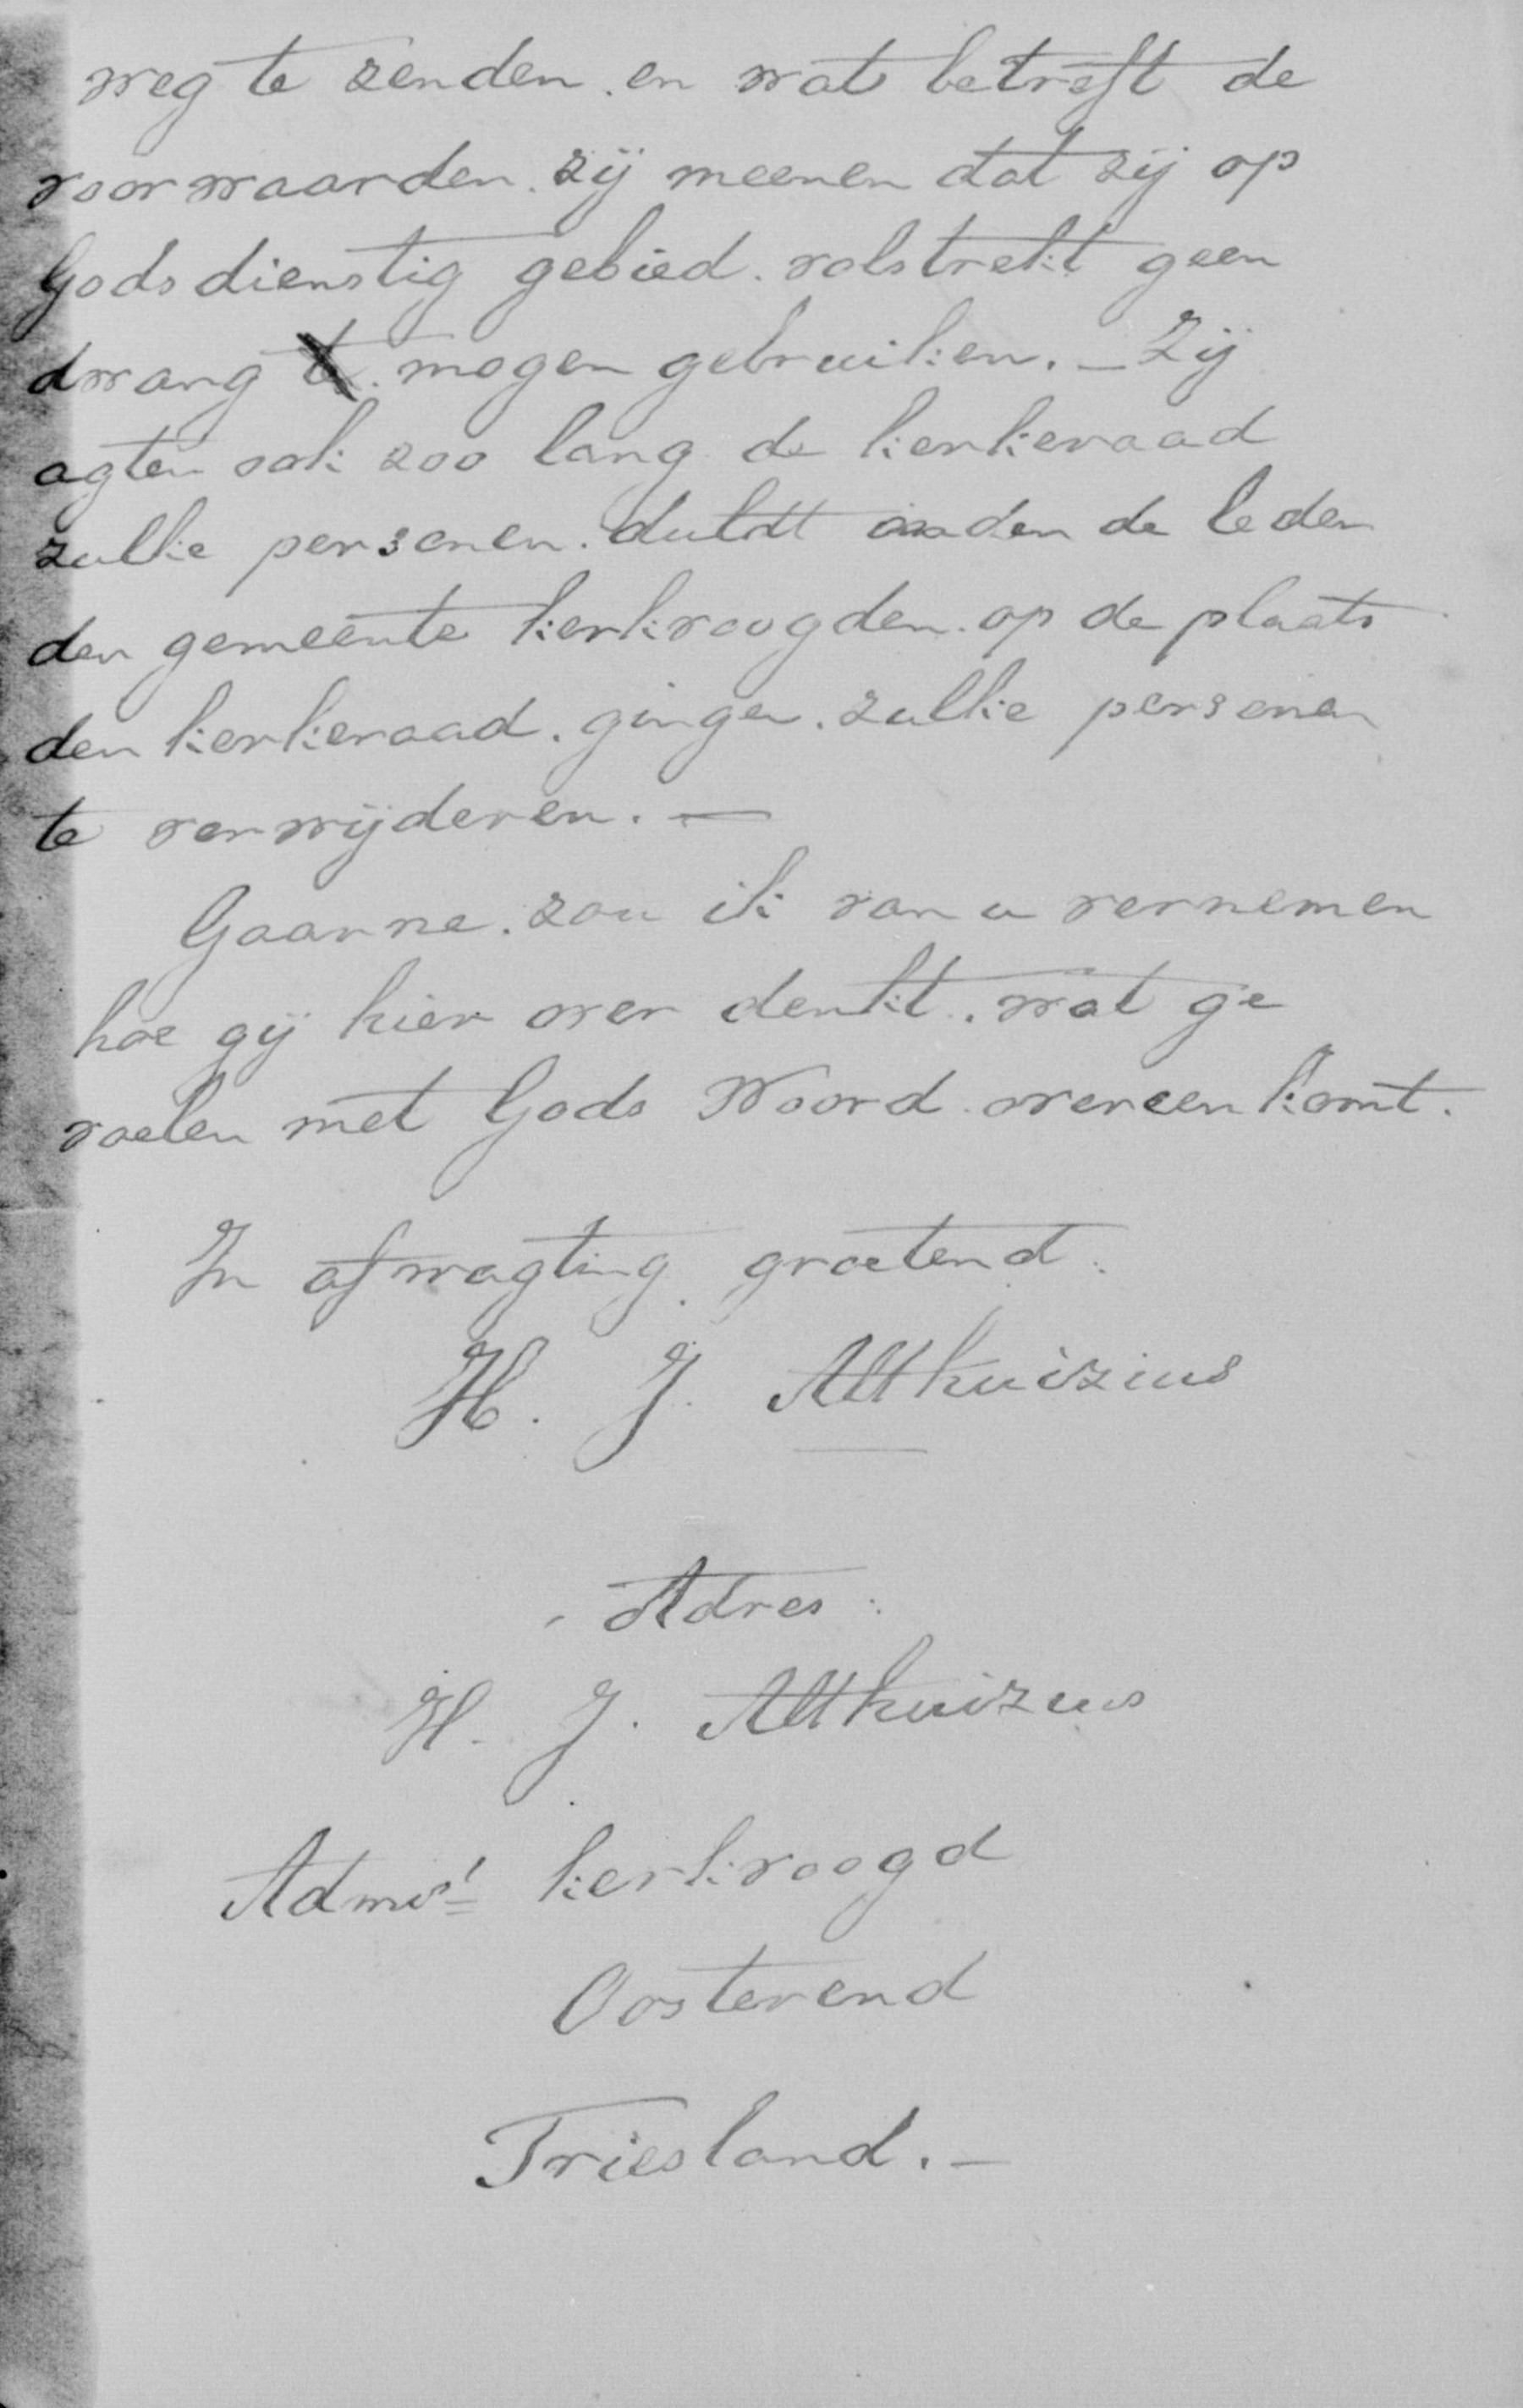 weg te zenden. en wat betreft de
voorwaarden. zij meenen dat zij op
Godsdienstig gebied. volstrekt geen
dwang mogen gebruiken. — Zij
agten ook zoo lang de kerkeraad
zulke personen. duldt onder de leden
der gemeente kerkvoogden. op de plaats
der kerkeraad. gingen. zulke personen
te verwijderen. —
Gaarne. zou ik van u vernemen
hoe gij hier over denkt. wat ge
voelen met Gods Woord. overeenkomt.
In afwagting groetend.
H. J. Althuizius
Adres:
H. J. Althuizius
kerkvoogd
Oosterend
Friesland. —